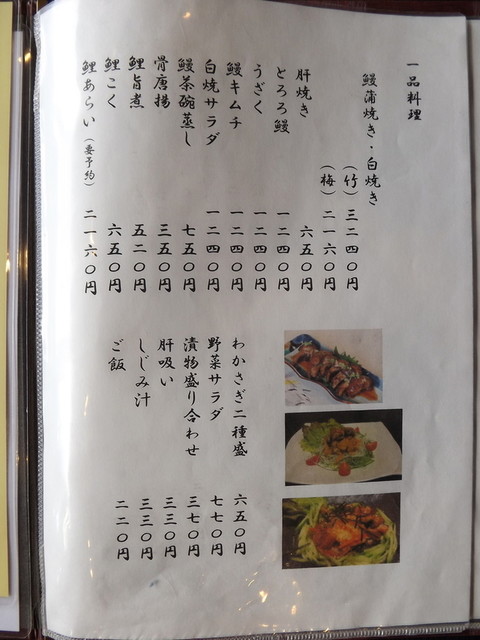 一品料理
鰻蒲焼き・白焼き
(竹) 三二四〇円
(梅) 二一六〇円
肝焼き 六五〇円
とろろ鰻 一二四〇円
うざく 一二四〇円
鰻キムチ 一二四〇円
白焼サラダ 一二四〇円
鰻茶碗蒸し 七五〇円
骨唐揚 三五〇円
鯉旨煮 五二〇円
鯉こく 六五〇円
鯉あらい(要予約) 二一六〇円
わかさぎ二種盛 六五〇円
野菜サラダ 七七〇円
漬物盛り合わせ 三七〇円
肝吸い 三三〇円
しじみ汁 三三〇円
ご飯 二二〇円